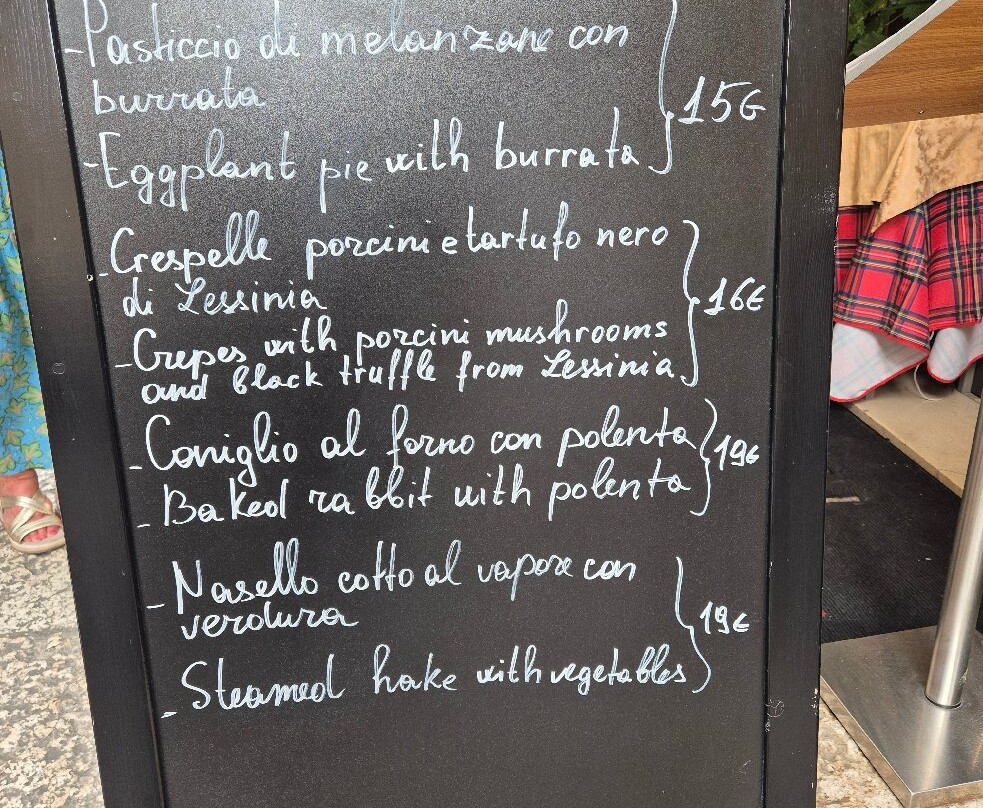 - Pasticcio di melanzane con
burrata
- Eggplant pie with burrata
15€
- Crespelle porcini e tartufo nero
di Lessinia
- Crepes with porcini mushrooms
and black truffle from Lessinia
16€
- Coniglio al forno con polenta
- Baked rabbit with polenta
19€
- Nasello cotto al vapore con
verdura
- Steamed hake with vegetables
19€